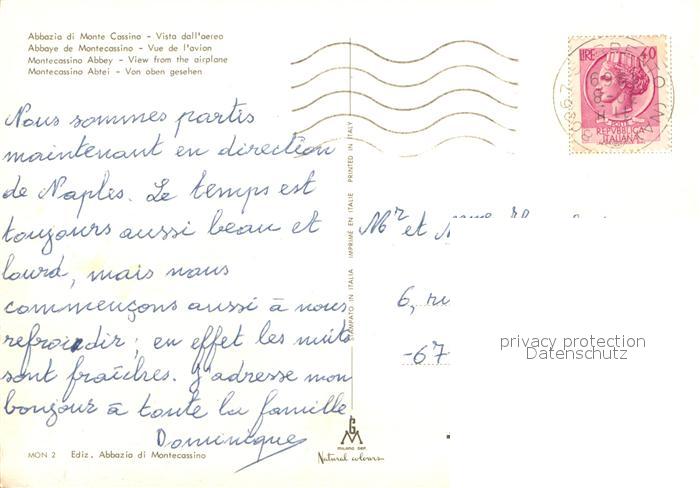 Abbazia di Monte Cassino - Vista dall'aereo
Abbaye de Montecassino - Vue de l'avion
Montecassino Abbey - View from the airplane
Montecassino Abtei - Von oben gesehen
Nous sommes partis
maintenant en direction
de Naples. Le temps est
toujours aussi beau et
lourd, mais nous
commençons aussi à nous
refroidir ; en effet les nuits
sont fraîches. J'adresse mon
bonjour à toute la famille
Dominique
MON 2 Ediz. Abbazia di Montecassino
STAMPATO IN ITALIA IMPRIMÉ EN ITALIE PRINTED IN ITALY
GM
MILANO DEP.
Natural colours
LIRE 40
POSTE
REPVBBLICA
ITALIANA
Mr et
6, ru
-67
privacy protection
Datenschutz